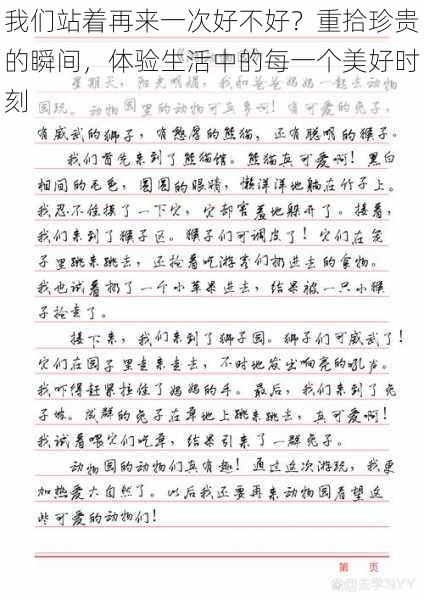 我们站着再来一次好不好？重拾珍贵
的瞬间，体验生活中的每一个美好时
刻
星期天，阳光明媚，我和爸爸妈妈一起去动物
园玩。动物园里的动物可真多啊！有可爱的兔子，
有威武的狮子，有憨厚的熊猫，还有聪明的猴子。
我们首先来到了熊猫馆。熊猫真可爱啊！黑白
相间的毛毛，圆圆的眼睛，懒洋洋地躺在竹子上。
我忍不住摸了一下它，它却害羞地躲开了。接着，
我们来到了猴子区。猴子们可调皮了！它们在笼
子里跳来跳去，还抢着吃游客们扔进去的食物。
我也试着扔了一个小苹果进去，结果被一只小猴
子抢走了。
接下来，我们来到了狮子园。狮子们可威武了！
它们在园子里走来走去，不时地发出响亮的吼声。
我吓得赶紧拉住了妈妈的手。最后，我们来到了兔
子坡。成群的兔子在草地上跳来跳去，真可爱啊！
我试着喂它们吃草，结果引来了一群兔子。
动物园的动物们真有趣！通过这次游玩，我更
加热爱大自然了。以后我还要再来动物园看望这
些可爱的动物们！
第 页